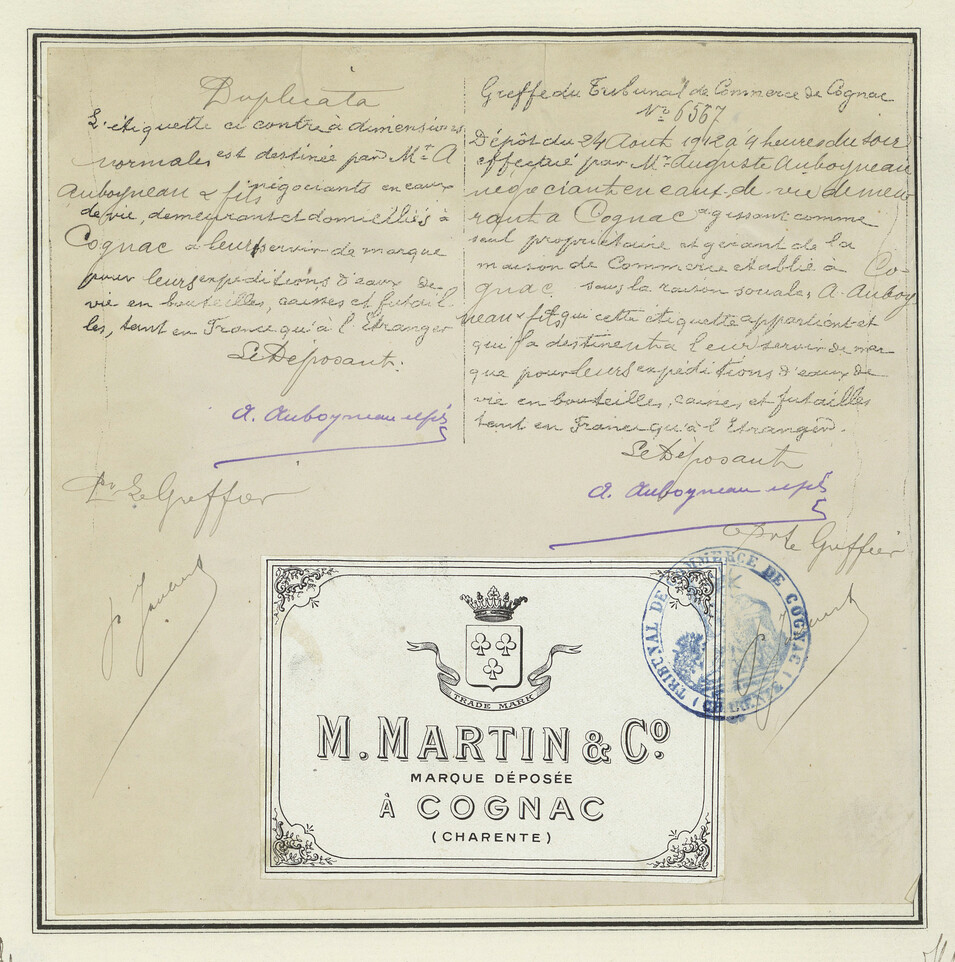 Duplicata
L'étiquette ci contre à dimensions
normales est destinée par Mr. A
Auboyneau & fils négociants en eaux
de vie, demeurant et domiciliés à
Cognac à leur servir de marque
pour leurs expéditions d'eaux de
vie en bouteilles, caisses et futail
les, tant en France qu'à l'Etranger
Le Déposant:
A. Auboyneau & fils
Pr. Le Greffier
Greffe du Tribunal de Commerce de Cognac
No 6567
Dépôt du 24 Aout 1912 à 4 heures du soir
effectué par Mr. Auguste Auboyneau
négociant en eaux de vie demeu
rant à Cognac agissant comme
seul propriétaire et gérant de la
maison de Commerce établie à Co-
gnac sous la raison sociale, A. Auboy
neau & fils, qui cette étiquette appartient et
qui la destinent à leur servir de mar
que pour leurs expéditions d'eaux de
vie en bouteilles, caisses, et futailles
tant en France qu'à l'Etranger.
Le Déposant
A. Auboyneau & fils
Pr le Greffier
TRIBUNAL DE COMMERCE DE COGNAC
(CHARENTE)
TRADE MARK
M. MARTIN & Co.
MARQUE DÉPOSÉE
À COGNAC
(CHARENTE)